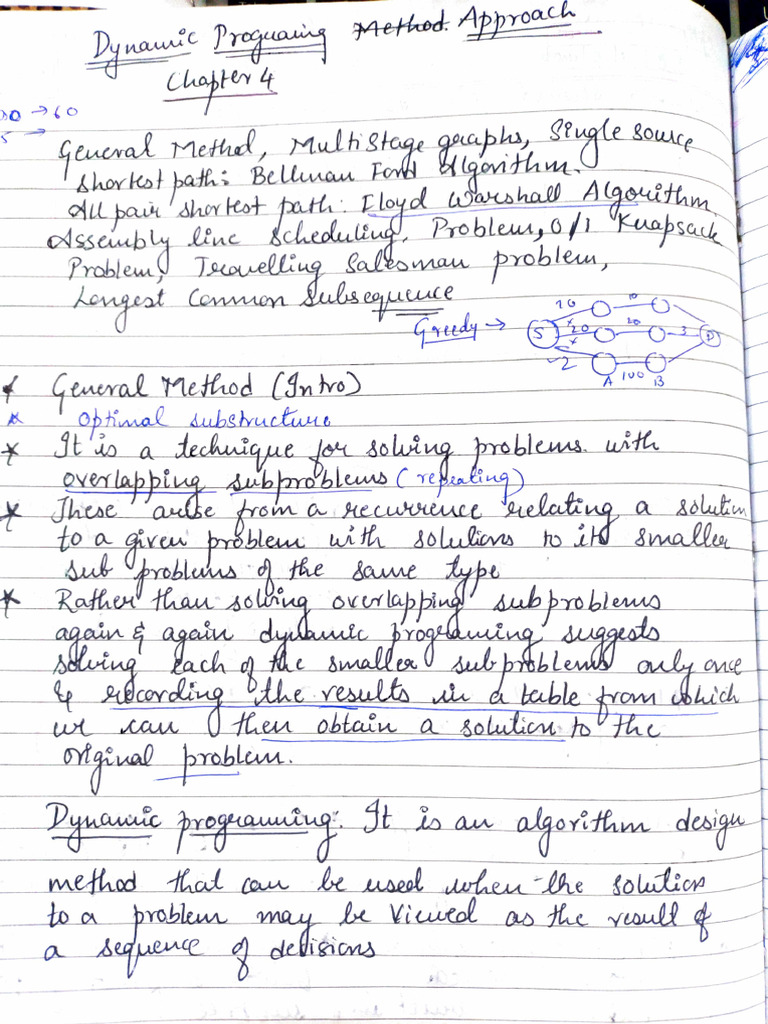 Dynamic Programing Method. Approach
Chapter 4
→ 60
5 →
General Method, MultiStage graphs, Single source
shortest path: Bellman Ford Algorithm.
All pair shortest path: Floyd Warshall Algorithm.
Assembly line scheduling, Problem, 0/1 Knapsack
Problem, Travelling Salesman problem,
Longest Common Subsequence
Greedy →
S
10
10
20
20
3
D
2
A
100
B
General Method (Intro)
* Optimal substructure
* It is a technique for solving problems with
overlapping subproblems (repeating)
* These arise from a recurrence relating a solution
to a given problem with solutions to its smaller
sub problems of the same type
* Rather than solving overlapping subproblems
again & again dynamic programing suggests
solving each of the smaller subproblems only once
& recording the results in a table from which
we can then obtain a solution to the
original problem.
Dynamic programming: It is an algorithm design
method that can be used when the solution
to a problem may be viewed as the result of
a sequence of decisions